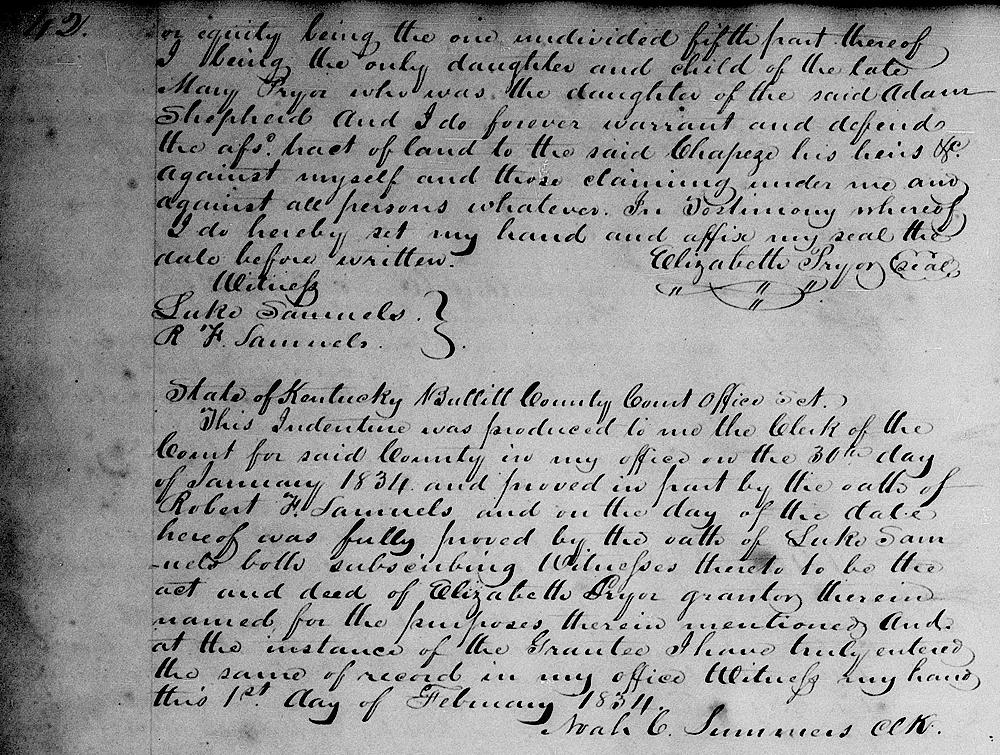 42.
or equity being the one undivided fifth part thereof
I being the only daughter and child of the late
Mary Pryor who was the daughter of the said Adam
Shepherd And I do forever warrant and defend
the afsd. tract of land to the said Chapeze his heirs &c.
against myself and those claiming under me and
against all persons whatever. In Testimony whereof
I do hereby set my hand and affix my seal the
date before written. Elizabeth Pryor Seal
Witness
Luke Samuels.
R F. Samuels.
State of Kentucky Bullitt County Court Office Sct.
This Indenture was produced to me the Clerk of the
Court for said County in my office on the 30th day
of January 1834 and proved in part by the oath of
Robert F. Samuels and on the day of the date
hereof was fully proved by the oath of Luke Sam
-uels both subscribing Witnesses thereto to be the
act and deed of Elizabeth Pryor grantor therein
named for the purposes therein mentioned And
at the instance of the Grantee I have truly entered
the same of record in my office Witness my hand
this 1st day of February 1834.
Noah C. Summers Clk.